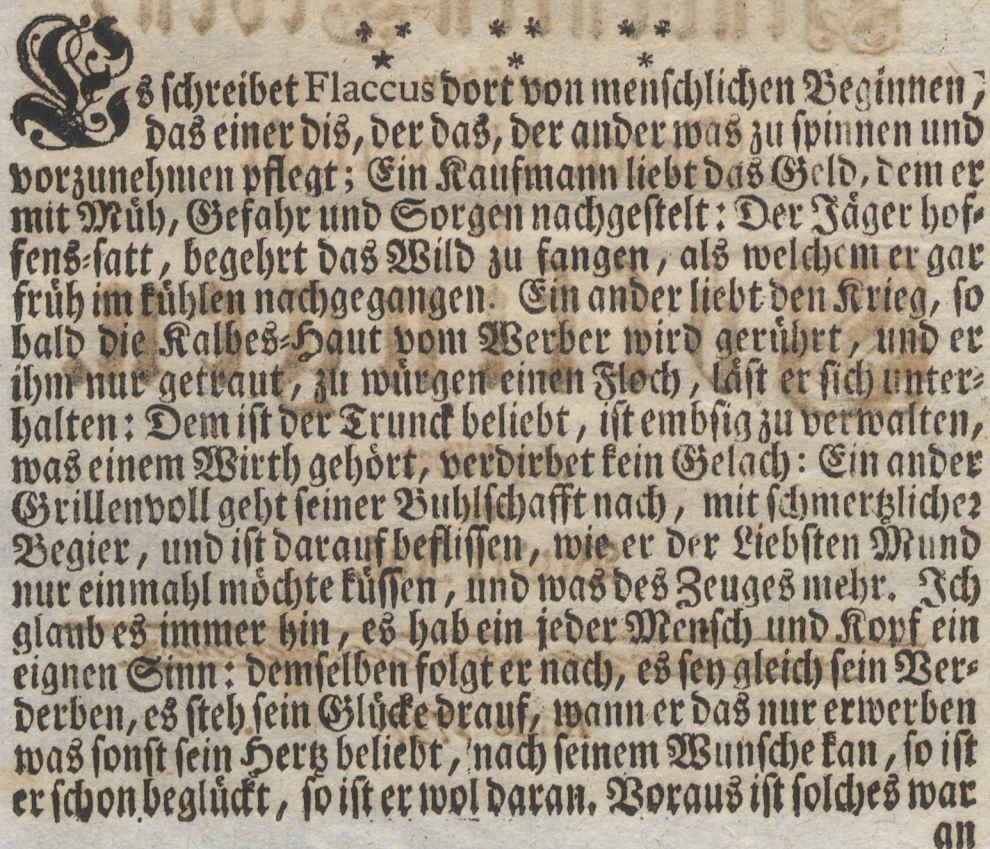 ** ** **
* * *
Es schreibet Flaccus dort von menschlichen Beginnen,
das einer dis, der das, der ander was zu spinnen und
vorzunehmen pflegt; Ein Kaufmann liebt das Geld, dem er
mit Müh, Gefahr und Sorgen nachgestelt: Der Jäger hof-
fens-satt, begehrt das Wild zu fangen, als welchem er gar
früh im kühlen nachgegangen. Ein ander liebt den Krieg, so
bald die Kalbes-Haut vom Werber wird gerührt, und er
ihm nur getraut, zu würgen einen Floch, läst er sich unter-
halten: Dem ist der Trunck beliebt, ist embsig zu verwalten,
was einem Wirth gehört, verdirbet kein Gelach: Ein ander
Grillenvoll geht seiner Buhlschafft nach, mit schmertzlicher
Begier, und ist darauf beflissen, wie er der Liebsten Mund
nur einmahl möchte küssen, und was des Zeuges mehr. Ich
glaub es immer hin, es hab ein jeder Mensch und Kopf ein
eignen Sinn: demselben folgt er nach, es sey gleich sein Ver-
derben, es steh sein Glücke drauf, wann er das nur erwerben
was sonst sein Hertz beliebt, nach seinem Wunsche kan, so ist
er schon beglückt, so ist er wol daran. Voraus ist solches war
an